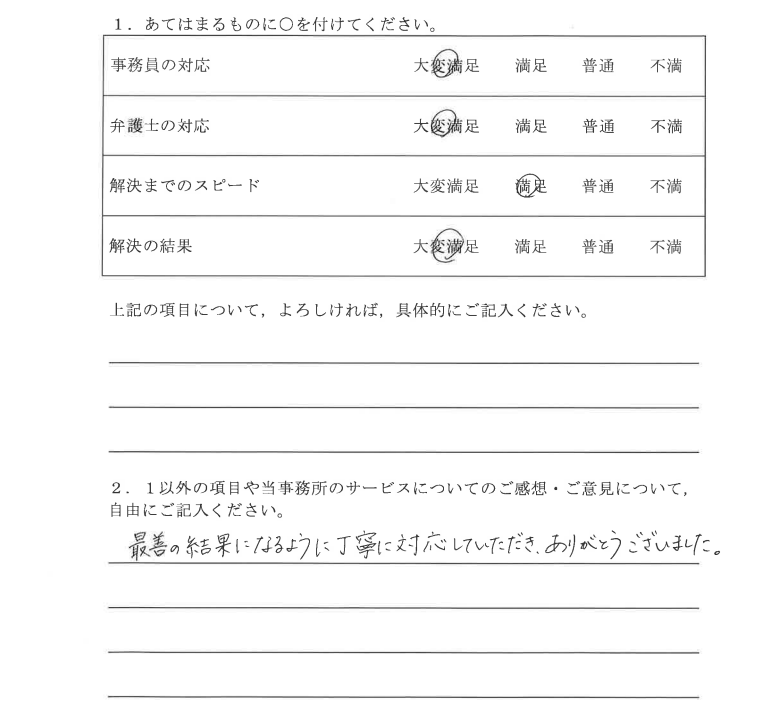 １．あてはまるものに○を付けてください。
事務員の対応 大変満足 満足 普通 不満
弁護士の対応 大変満足 満足 普通 不満
解決までのスピード 大変満足 満足 普通 不満
解決の結果 大変満足 満足 普通 不満
上記の項目について，よろしければ，具体的にご記入ください。
２．１以外の項目や当事務所のサービスについてのご感想・ご意見について，
自由にご記入ください。
最善の結果になるように丁寧に対応していただき、ありがとうございました。